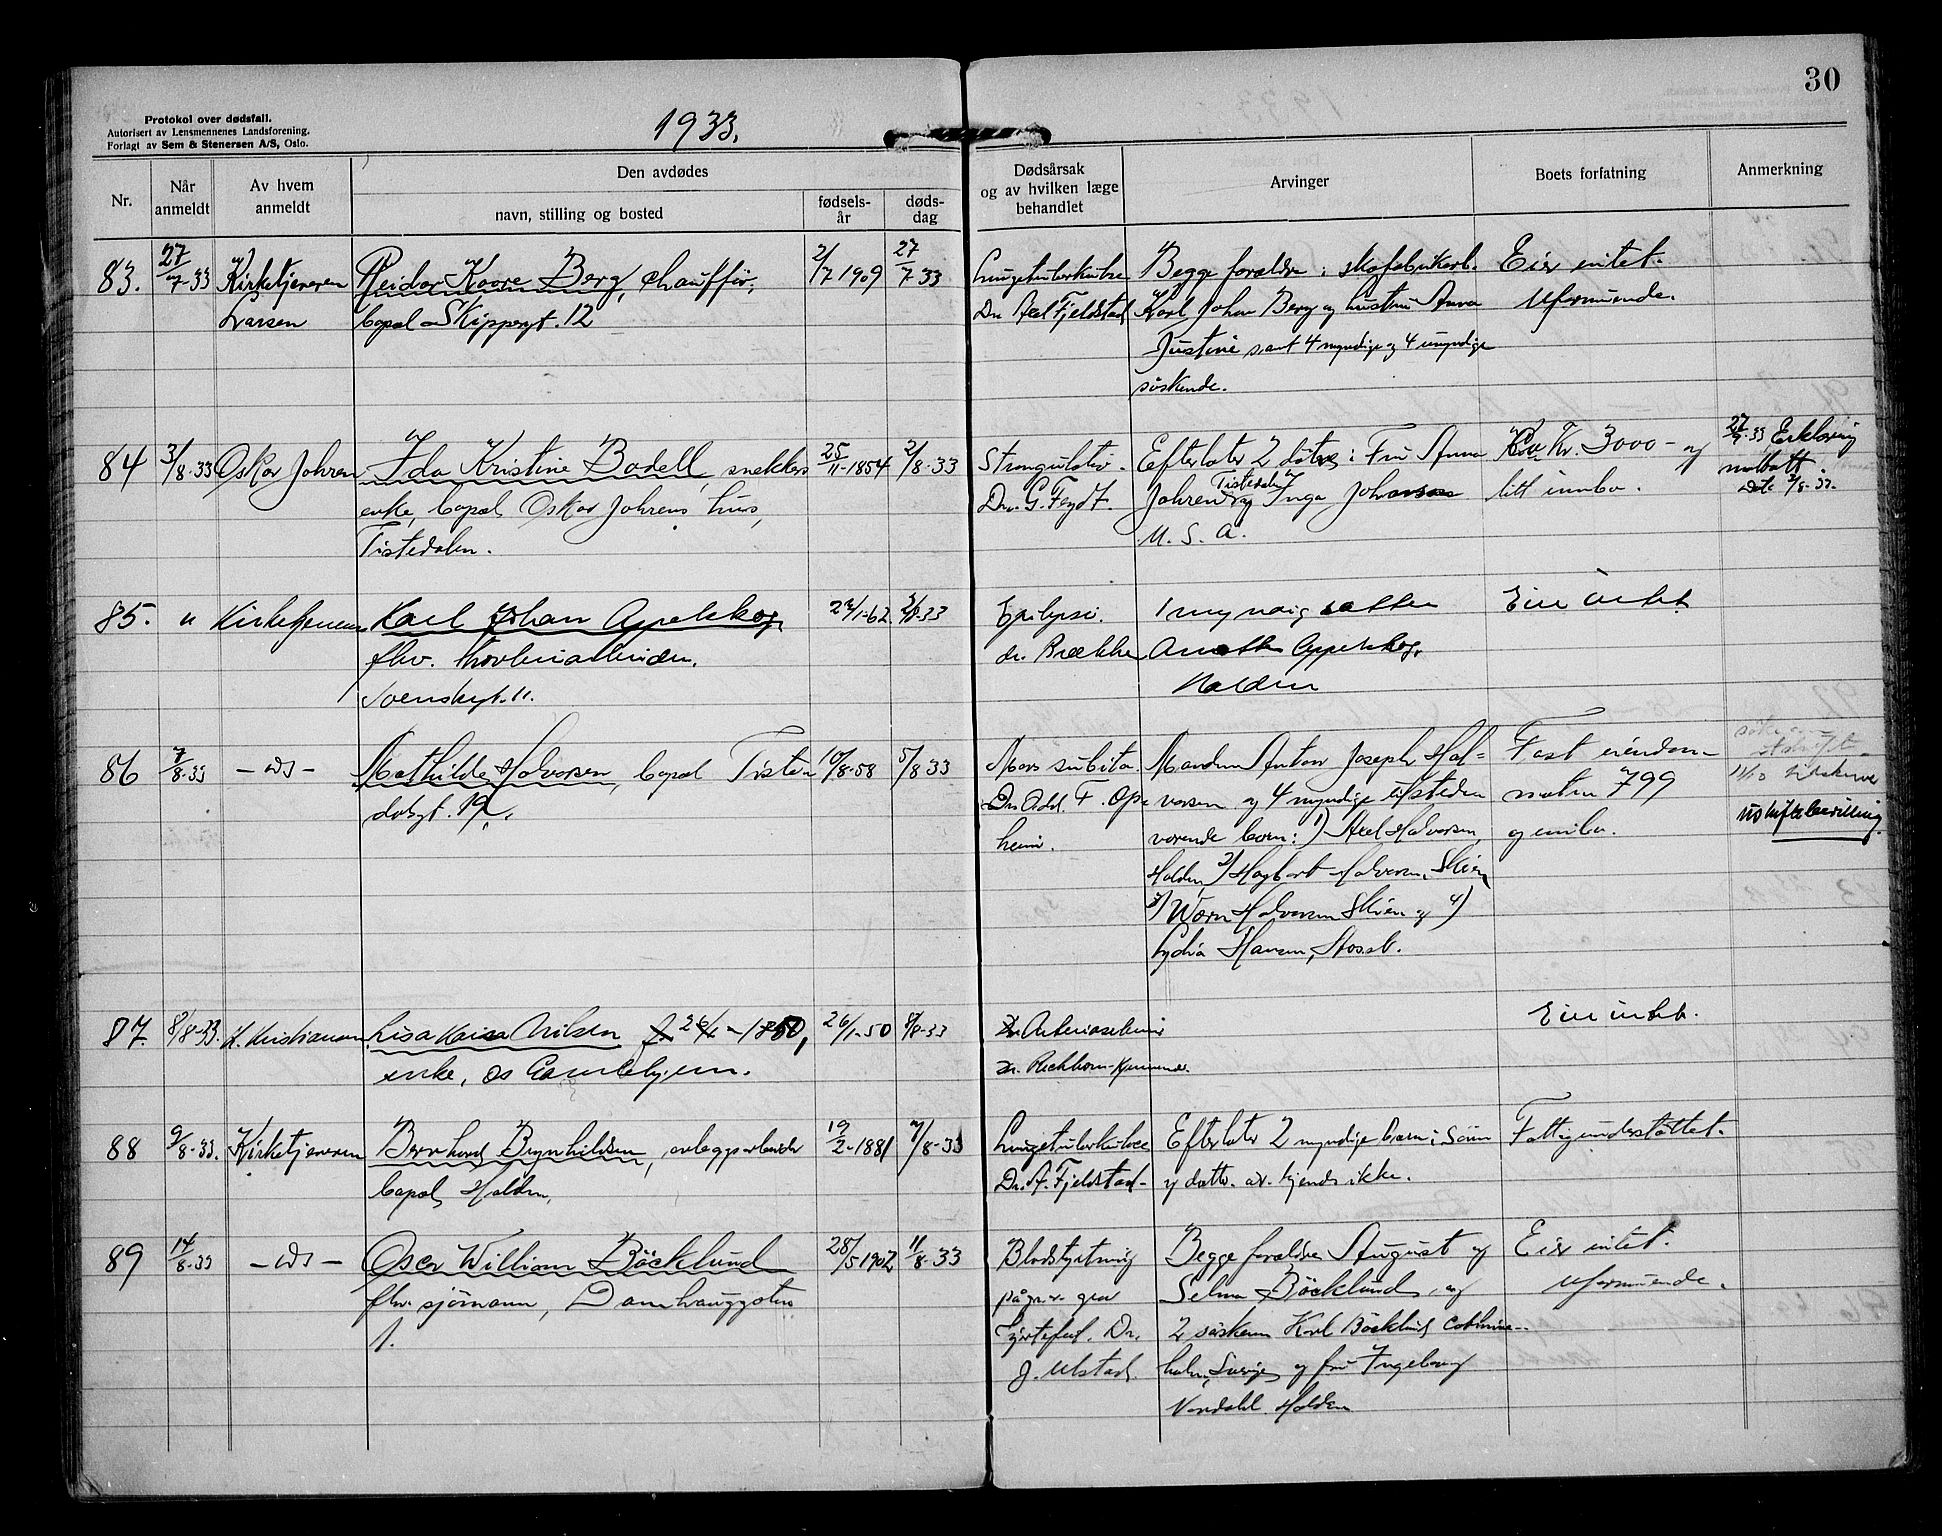 30
Protokol over dødsfall.
Autorisert av Lensmennenes Landsforening.
Forlagt av Sem & Stenersen A/S, Oslo.
1933.
Nr.
Når anmeldt
Av hvem anmeldt
Den avdødes
navn, stilling og bosted
fødsels-år
døds-dag
Dødsårsak
og av hvilken læge
behandlet
Arvinger
Boets forfatning
Anmerkning
83. 27/7-33 Kirketjeneren Reidar Kaare Berg, chauffør, 2/7 1909 27/7-33
Larsen bopæl Skippergt. 12
Lungetuberkulose Begge forældre: skofabrikarb. Eier intet.
Dr. Axel Fjeldstad Karl Johan Berg og hustru Anna Uformuende.
Justine samt 4 myndige og 4 umyndige
søskende.
84 3/8-33 Oskar Johren Ida Kristine Bodell, snekkers 25/11-1854 2/8-33
enke, bopæl Oskar Johrens hus,
Tistedalen.
Strangulatio. Efterlater 2 døtre: Fru Anna Kr. 3000- og
Dr. G. Feydt. Johren Tistedalen og Inga litt innbo.
U. S. A.
27/7-33 Erklæring
mottatt.
Dato 3/8-33.
85. " Kirketjeneren Karl Johan Appelskog, 1-62 8-33
fhv. høvleriarbeider.
Svenskegt. 11.
Epilepsi. 1 myndig datter Eier intet
dr. Brække Appelskog,
Halden
86 7/8-33 - ds - Mathilde Halvorsen, bopæl Tiste- 10/8-58 5/8 33
dalsgt. 19.
Mors subita. Manden Anton Joseph Hal- Fast eiendom
Dr. Add. F. Opp- vorsen og 4 myndige tilstede- matr 799
heim. værende barn: 1) Axel Halvorsen og innbo.
Halden 2) Hagbart Halvorsen, Skien
3) Halvorsen Skien og 4)
Lydia Hansen, Mossb.
uskiftebevilling.
87. 8/8-33. H. Kristiansen Lisa Maria Nilsen f. 26/1-1850, 26/1-50 8-33
enke, Gamlehjem.
Dr. Eier intet.
dr. Richborn-Kjennerud
88 9/8-33. Kirketjeneren Bernhard Brynhildsen, anleggsarbeider 19/2-1881 7/8-33
bopæl Halden,
Lungetuberkulose Efterlater 2 myndige barn: sønn Fattigunderstøttet.
Dr. A. Fjeldstad- og datter. adr. kjendes ikke.
89 14/8-33 - ds - Oscar William Böcklund 28/5 1902 11/8-33
fhv. sjømann, Damhauggaten
1.
Blodstyrtning Begge forældre August og Eier intet.
på gr. av Selma Böcklund, og Uformuende.
hjertefeil. Dr. 2 søsken Karl Böcklund
J. Ulstad. Sverige og fru Ingeborg
Nordahl Halden